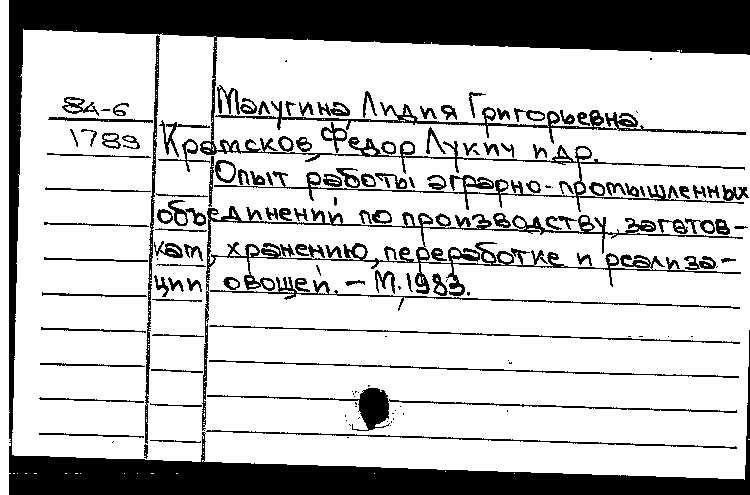 8А-6 Малугина Лидия Григорьевна.
1789 Крамсков, Федор Лукич и др.
Опыт работы аграрно-промышленных
объединений по производству, заготов-
кам, хранению, переработке и реализа-
ции овощей. – М. 1983.